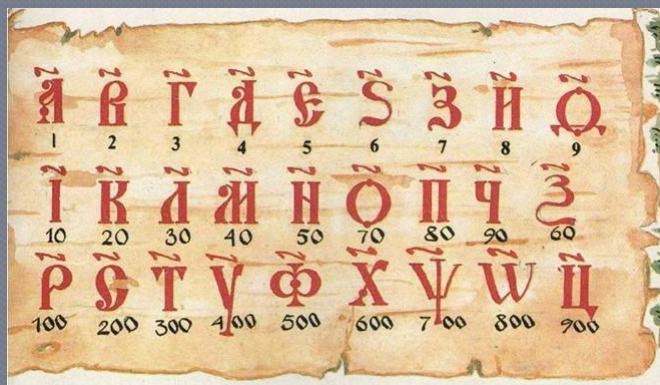 А҃ В҃ Г҃ Д҃ Е҃ Ѕ҃ З҃ И҃ Ѳ҃
1 2 3 4 5 6 7 8 9
І҃ К҃ Л҃ М҃ Н҃ О҃ П҃ Ч҃ Ѯ҃
10 20 30 40 50 70 80 90 60
Р҃ С҃ Т҃ У҃ Ф҃ Х҃ Ѱ҃ Ѡ҃ Ц҃
100 200 300 400 500 600 700 800 900